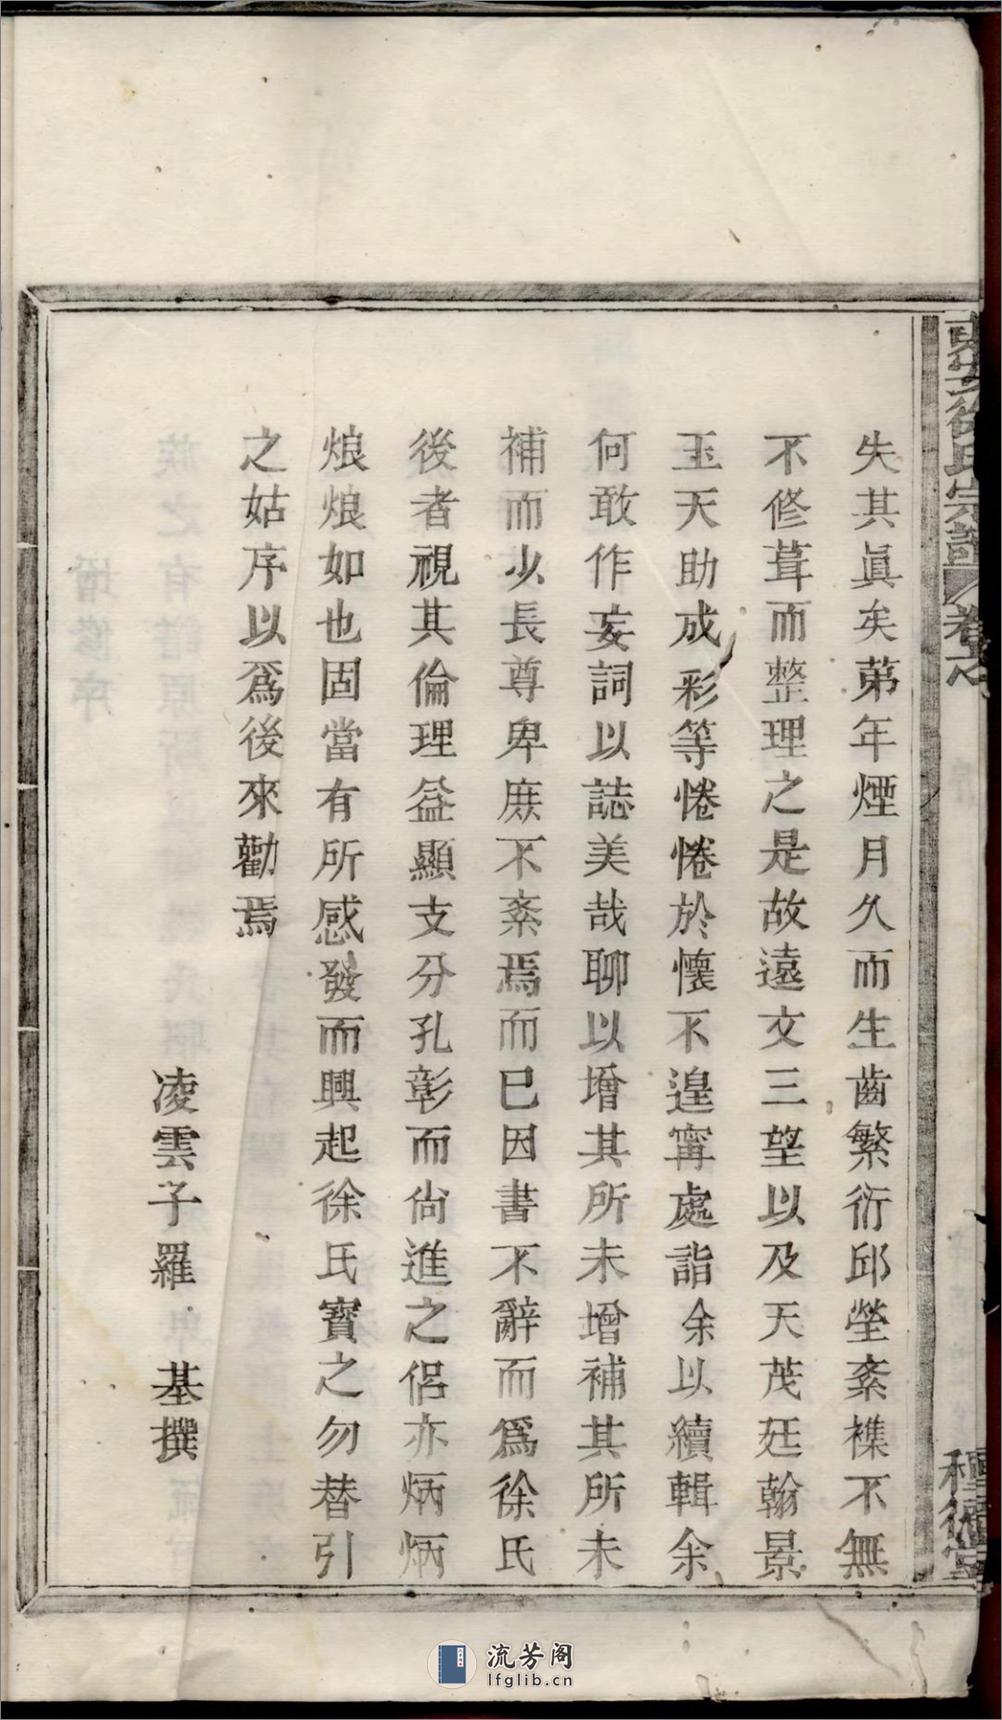 徐氏宗譜 卷之
種德堂
失其眞矣苐年煙月久而生齒繁衍邱塋紊襍不無
不修葺而整理之是故遠文三望以及天茂廷翰景
玉天助成彩等惓惓於懷不遑寧處詣余以續輯余
何敢作妄詞以誌美哉聊以增其所未增補其所未
補而少長尊卑庶不紊焉而已因書不辭而爲徐氏
後者視其倫理益顯支分孔彰而尙進之侣亦炳炳
烺烺如也固當有所感發而興起徐氏寳之勿替引
之姑序以爲後來勸焉
凌雲子羅 基撰
流芳阁
lfglib.cn